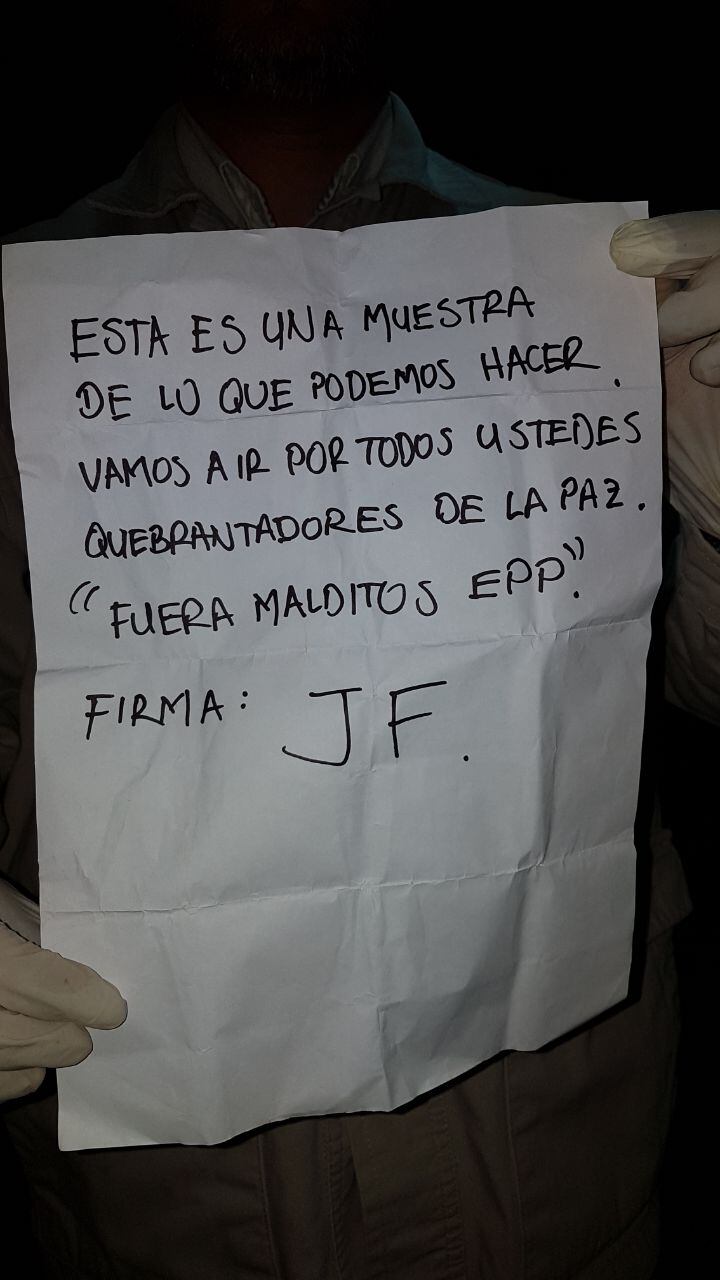 ESTA ES UNA MUESTRA
DE LO QUE PODEMOS HACER.
VAMOS A IR POR TODOS USTEDES
QUEBRANTADORES DE LA PAZ.
"FUERA MALDITOS EPP."
FIRMA: JF.